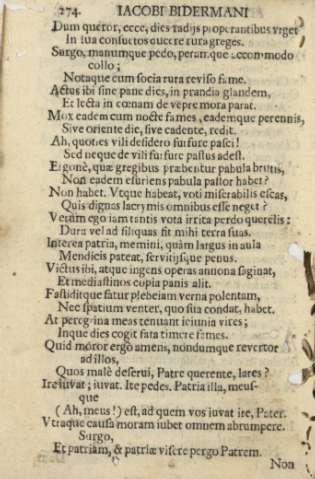 274. IACOBI BIDERMANI
Dum queror, ecce, dies radijs properantibus vrget
In sua consuetos ducere rura greges.
Surgo, manumque pedo, peramque accommodo
collo;
Notaque cum socia rura reviso fame.
Actus ibi sine pane dies, in prandia glandem,
Et lecta in cœnam de vepre mora parat.
Mox eadem cum nocte fames, eademque perennis,
Sive oriente die, sive cadente, redit.
Ah, quoties vili desidero furfure pasci!
Sed neque de vili furfure pastus adest.
Ergonè, quæ gregibus præbentur pabula brutis,
Non eadem esuriens pabula pastor habet?
Non habet. Vtque habeat, voti miserabilis escas,
Quis dignas lacrymis omnibus esse neget?
Verùm ego iam tantis vota irrita perdo querelis:
Dura vel ad siliquas fit mihi terra suas.
Interea patria, memini, quàm largus in aula
Mendicis pateat, servitijsque penus.
Victus ibi, atque ingens operas annona saginat,
Et mediastinos copia panis alit.
Fastiditque satur plebeiam verna polentam,
Nec spatium venter, quo sua condat, habet.
At peregrina meas tenuant ieiunia vires;
Inque dies cogit fata timere fames.
Quid moror ergò amens, nondumque revertor
ad illos,
Quos malè deserui, Patre querente, lares?
Ire iuvat; iuvat. Ite pedes. Patria illa, meus-
que
(Ah, meus!) est, ad quem vos iuvat ire, Pater.
Vtraque causa moram iubet omnem abrumpere.
Surgo,
Et patriam, & patriæ visere pergo Patrem.
Non